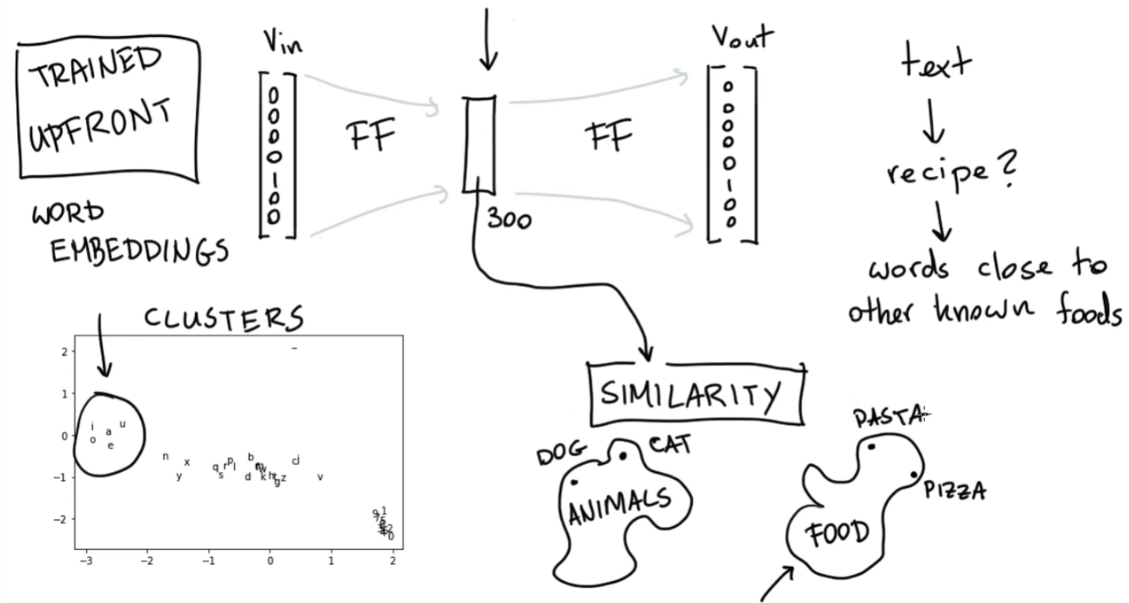 TRAINED
UPFRONT
WORD
EMBEDDINGS
Vin
0
0
0
0
1
0
0
FF
300
FF
Vout
0
0
0
0
0
1
0
0
text
recipe?
words close to
other known foods
CLUSTERS
2
1
0
-1
-2
-3 -2 -1 0 1 2
i a u
o e
n x y
q s r p l
b d k h t g z
c j v
SIMILARITY
DOG CAT
ANIMALS
PASTA
PIZZA
FOOD